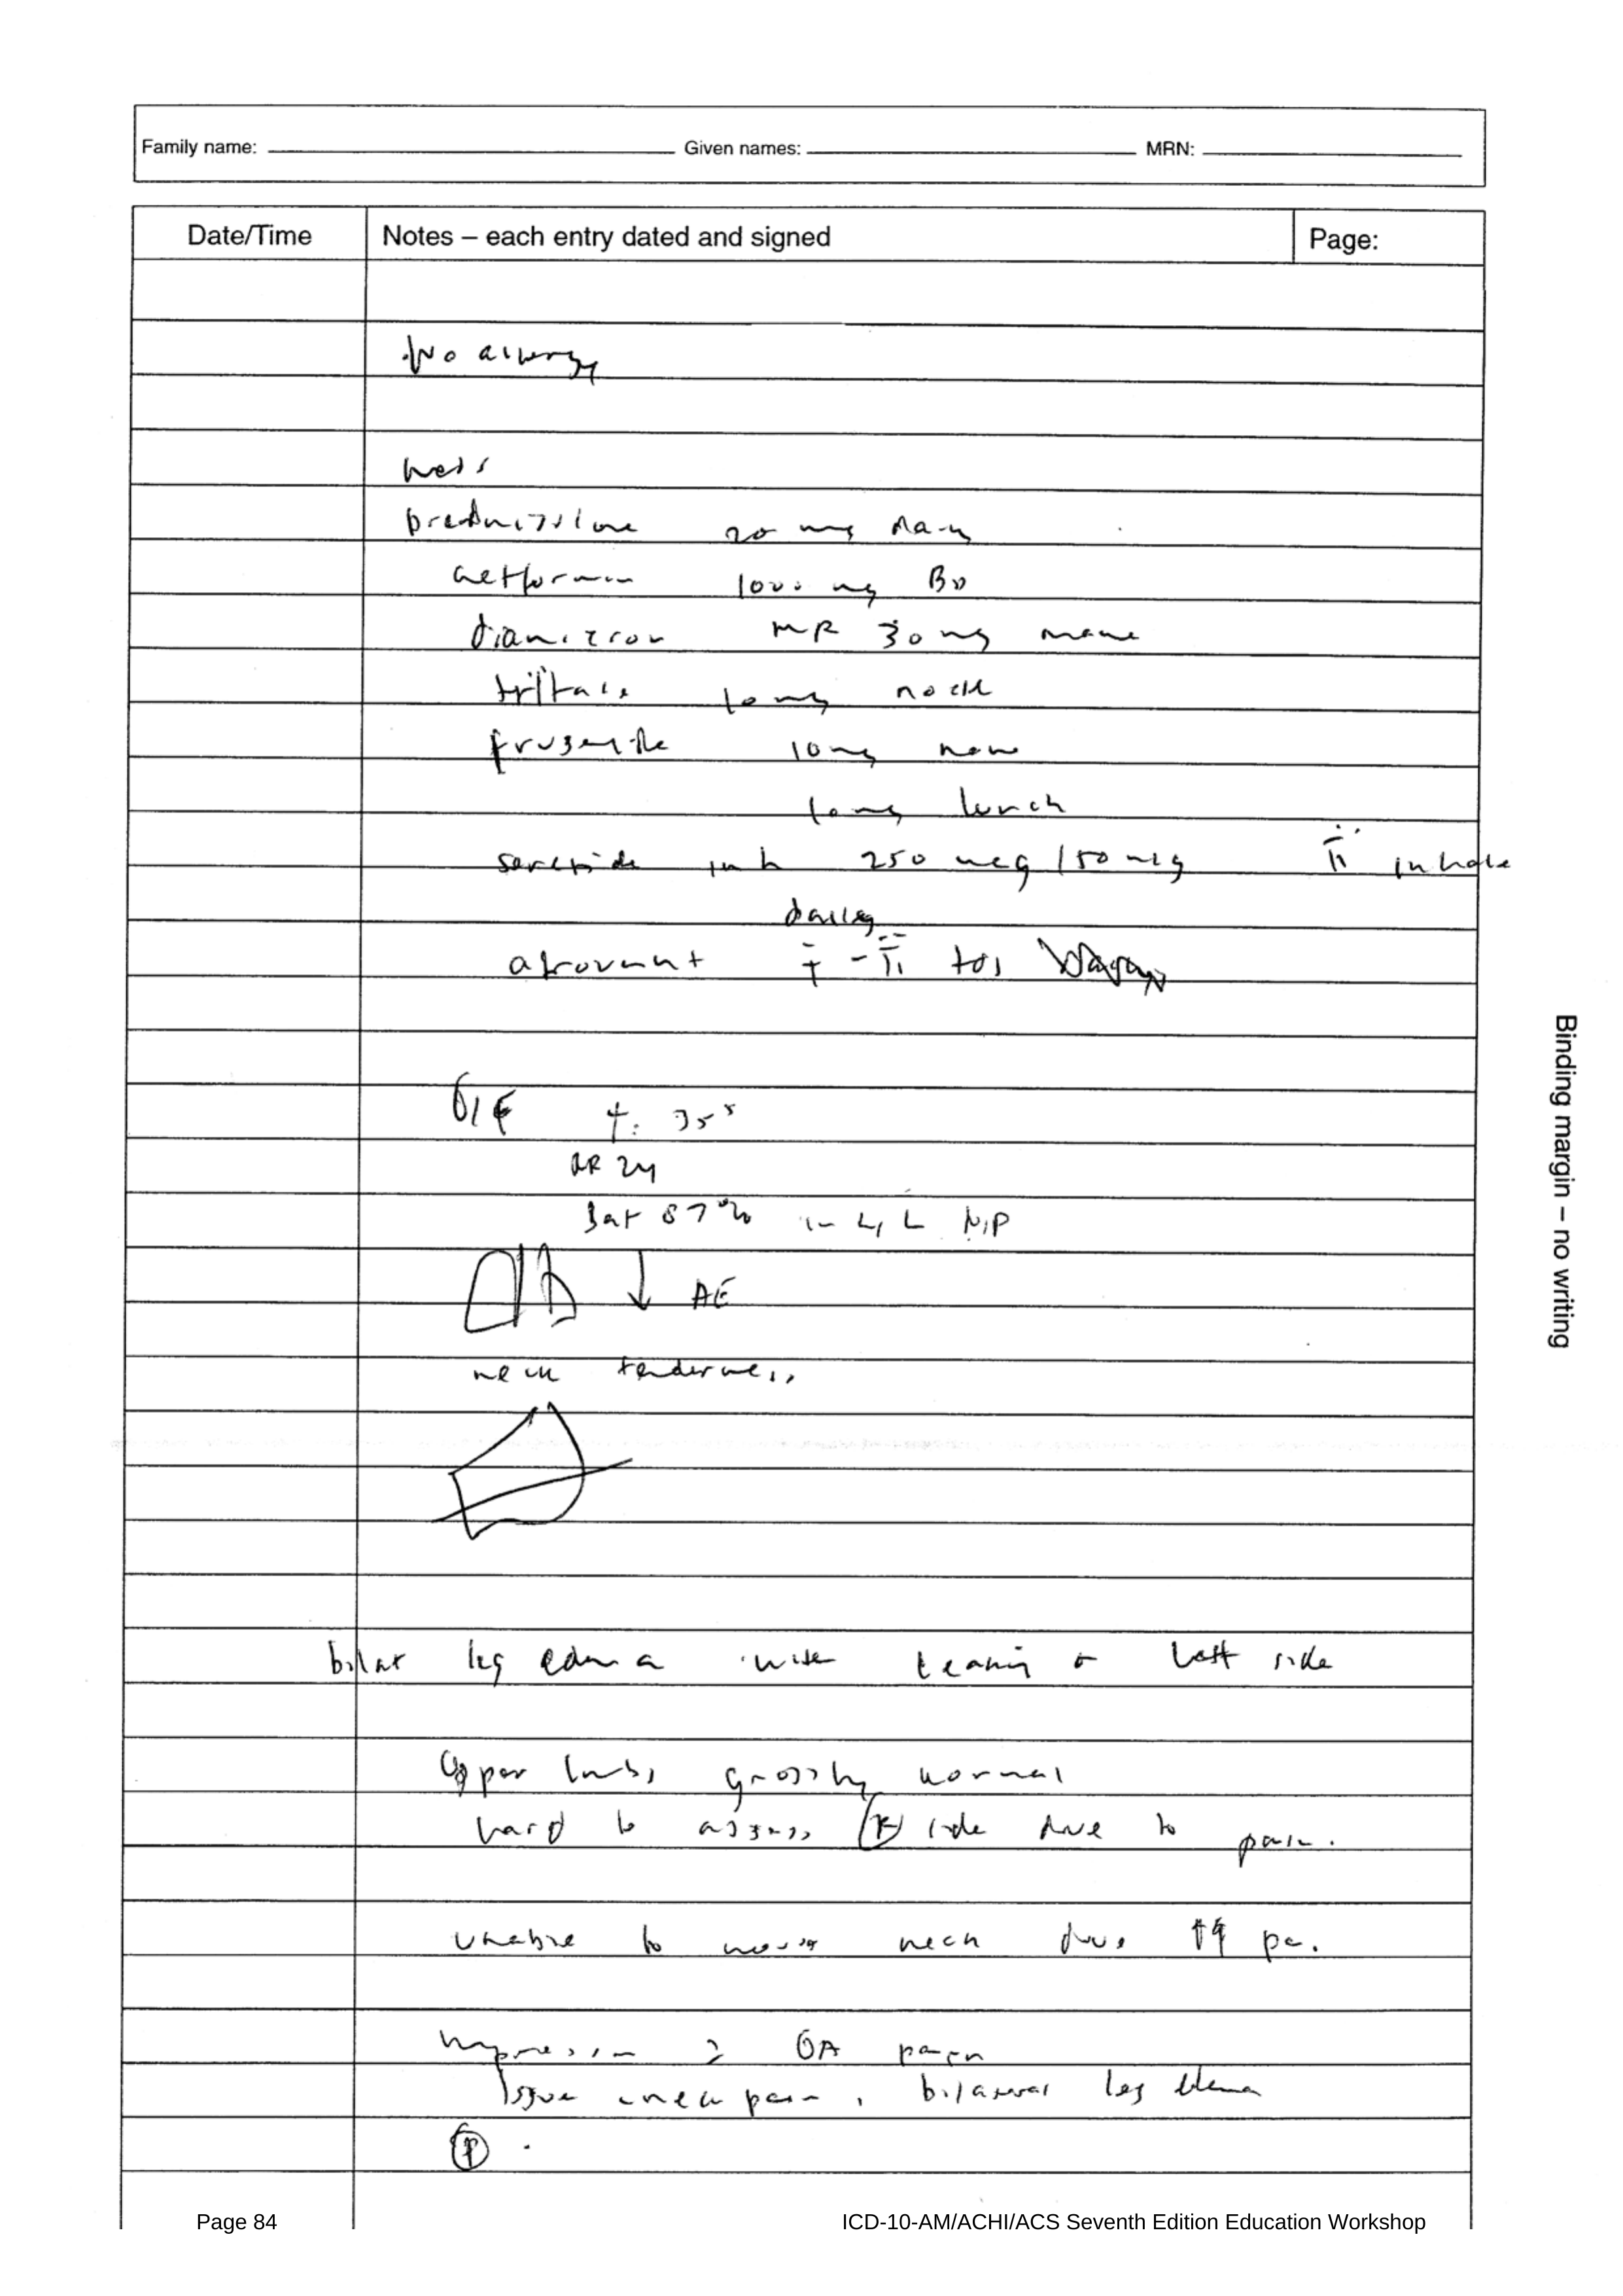 Family name: Given names: MRN:
Date/Time Notes – each entry dated and signed Page:
No allergy
meds
prednisolone 20 mg daily
metformin 1000 mg BD
diamicron MR 30 mg mane
tritace 10 mg nocte
frusemide 10mg mane
10mg lunch
seretide inh 250 mcg / 50 mcg ii inhale
daily
atrovent i - ii tds
O/E t: 35⁵
RR 24
Sat 87% in 4 L N/P
↓ AE
neck tenderness
bilat leg edema on left side
Upper limbs grossly normal
hard to assess (R) side due to pain.
unable to move neck due
Impression OA pain
Issue neck pain, bilateral leg edema
(P)
Binding margin – no writing
Page 84 ICD-10-AM/ACHI/ACS Seventh Edition Education Workshop